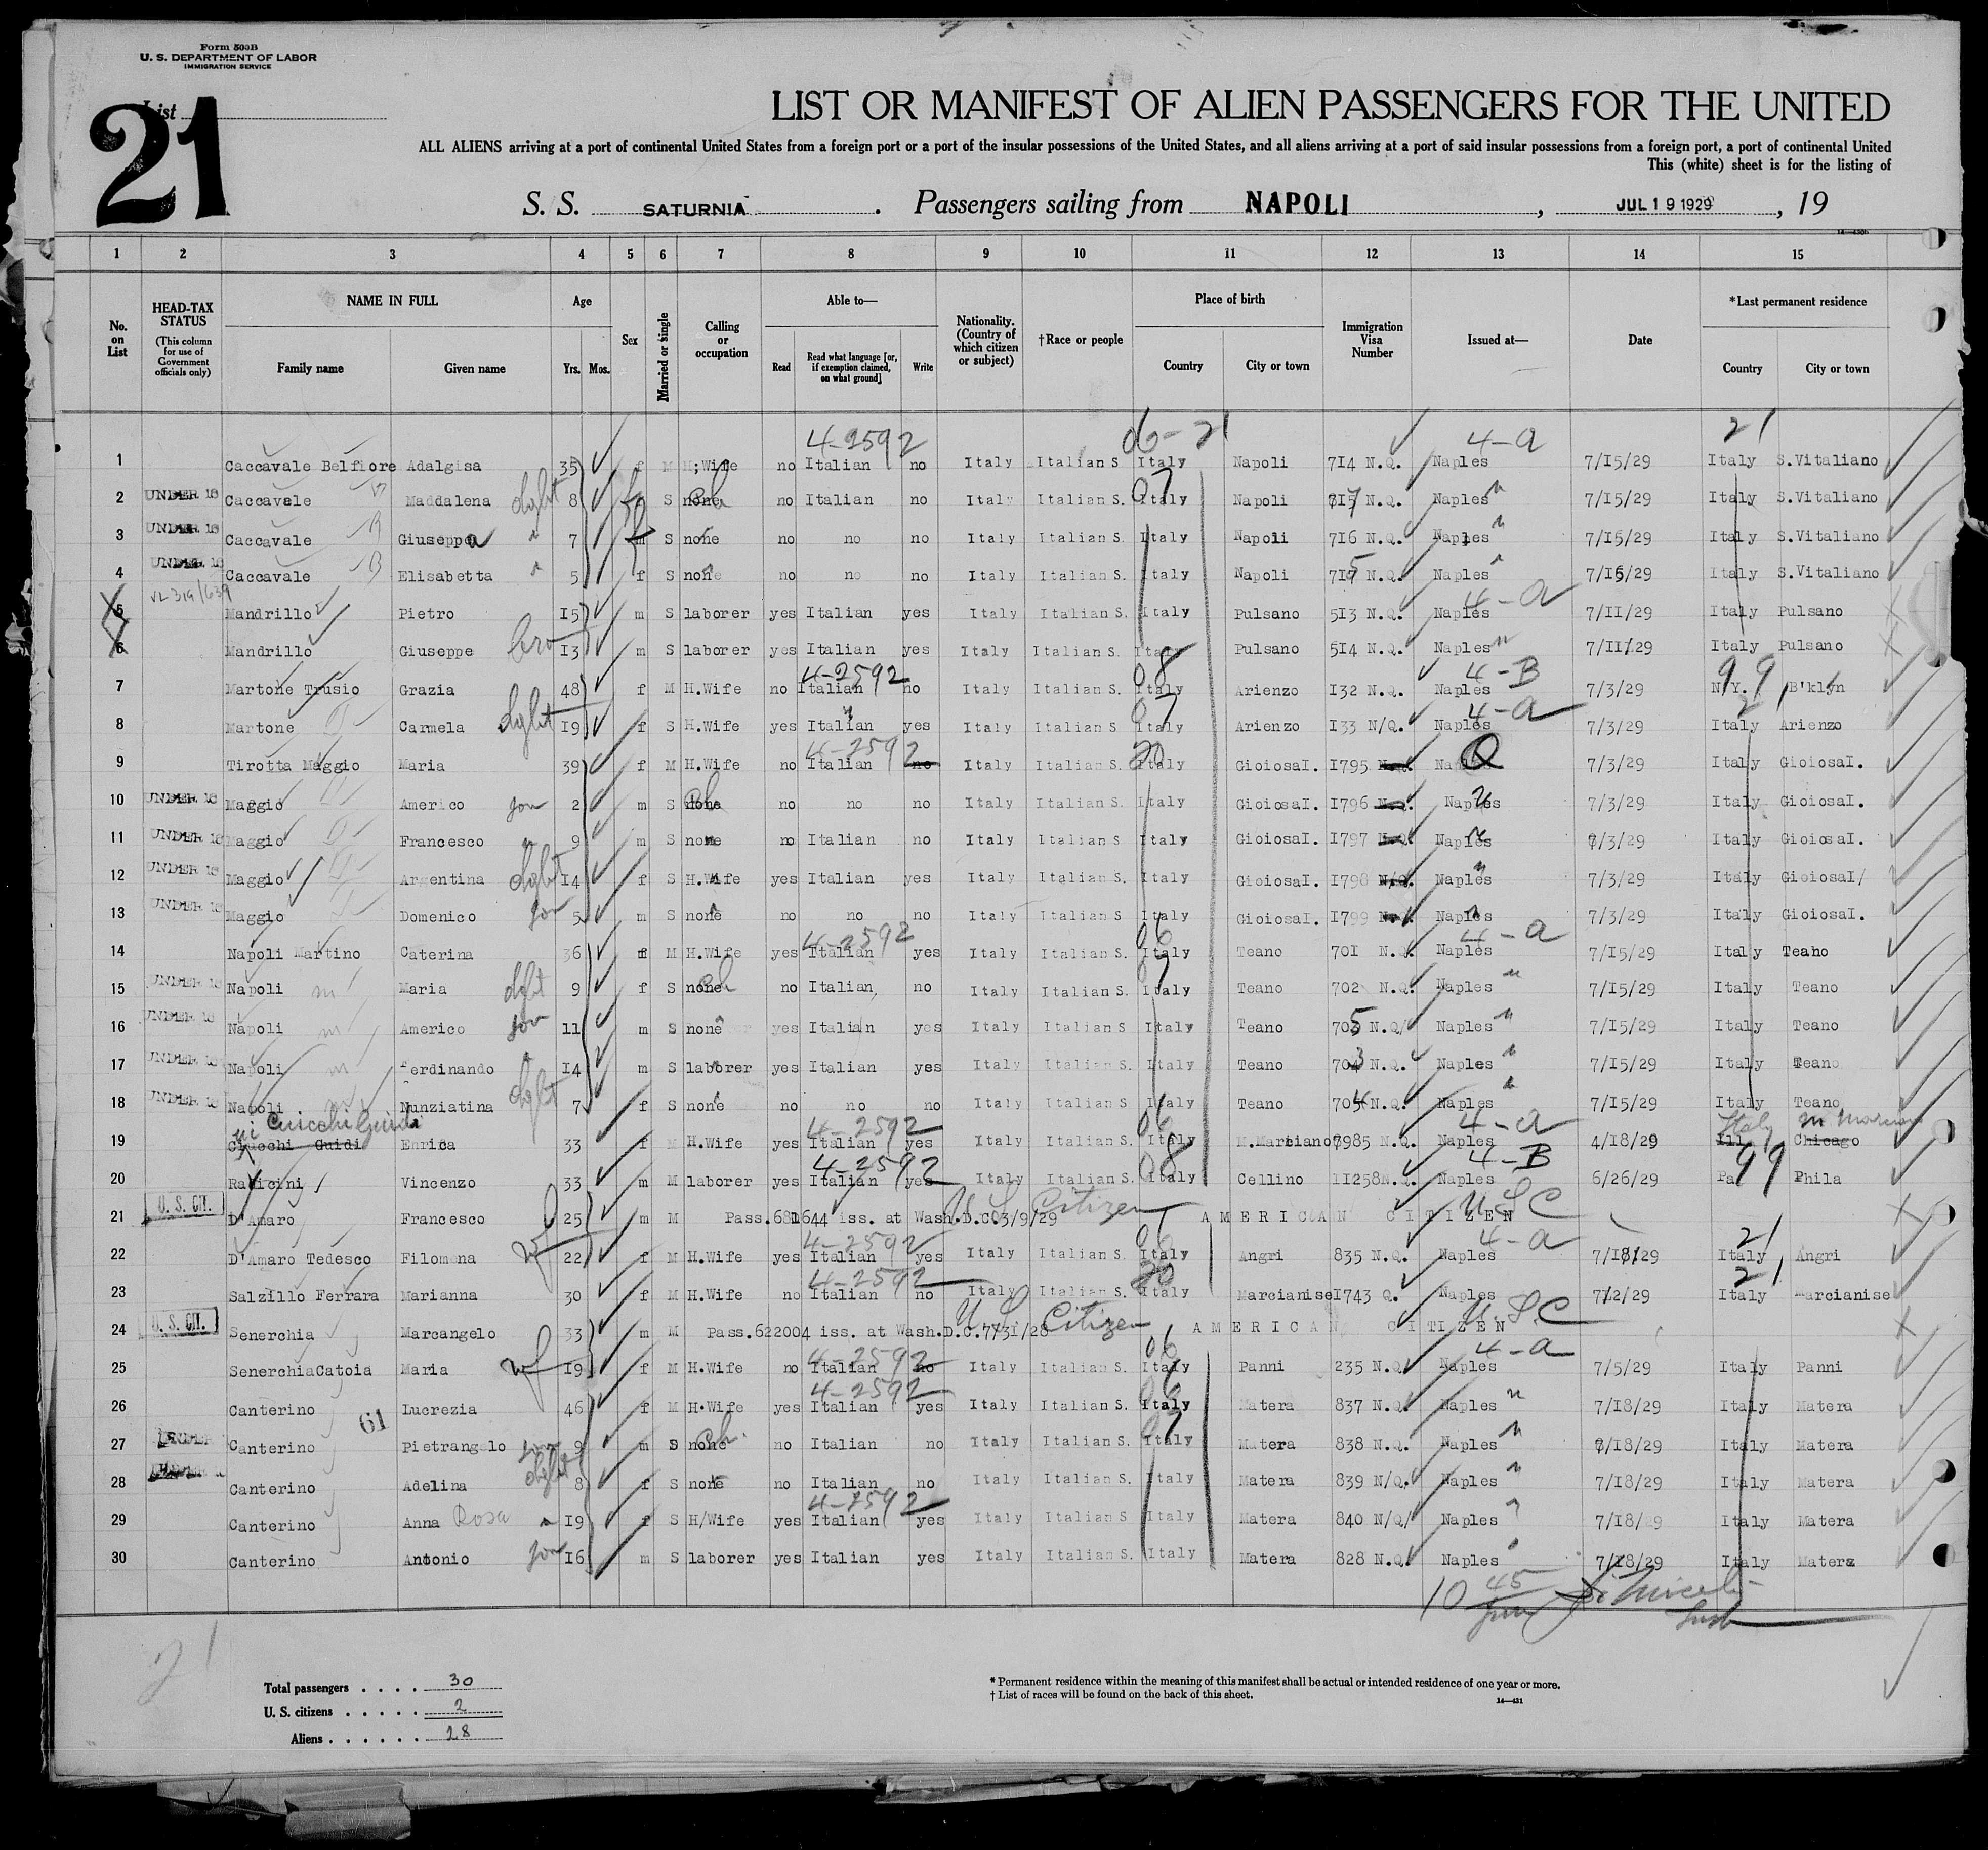 Form 500B
U. S. DEPARTMENT OF LABOR
IMMIGRATION SERVICE
List
21
LIST OR MANIFEST OF ALIEN PASSENGERS FOR THE UNITED
ALL ALIENS arriving at a port of continental United States from a foreign port or a port of the insular possessions of the United States, and all aliens arriving at a port of said insular possessions from a foreign port, a port of continental United
This (white) sheet is for the listing of
S. S. SATURNIA. Passengers sailing from NAPOLI, JUL 19 1929, 19
1 2 3 4 5 6 7 8 9 10 11 12 13 14 15
No. on List HEAD-TAX STATUS (This column for use of Government officials only) NAME IN FULL Family name Given name Age Yrs. Mos. Sex Married or single Calling or occupation Able to— Read Read what language [or, if exemption claimed, on what ground] Write Nationality. (Country of which citizen or subject) †Race or people Place of birth Country City or town Immigration Visa Number Issued at— Date *Last permanent residence Country City or town
4-2592 06-21 4-a 21
1 Caccavale Belfiore Adalgisa 35 f M H;Wife no Italian no Italy Italian S Italy Napoli 714 N.Q. Naples 7/15/29 Italy S.Vitaliano
2 UNDER 16 Caccavale Maddalena dght 8 S none no Italian no Italy Italian S 07 Italy Napoli 717 N.Q. Naples " 7/15/29 Italy S.Vitaliano
3 UNDER 16 Caccavale Giuseppa " 7 S none no no no Italy Italian S. Italy Napoli 716 N.Q. Naples " 7/15/29 Italy S.Vitaliano
4 UNDER 16 Caccavale Elisabetta " 5 f S none no no no Italy Italian S. Italy Napoli 715 N.Q. Naples " 7/15/29 Italy S.Vitaliano
4-a
5 Mandrillo Pietro 15 m S laborer yes Italian yes Italy Italian S. Italy Pulsano 513 N.Q. Naples 7/11/29 Italy Pulsano
6 Mandrillo Giuseppe bro 13 m S laborer yes Italian yes Italy Italian S. Italy Pulsano 514 N.Q. Naples " 7/11/29 Italy Pulsano
4-2592 08 4-B 99
7 Martone Trusio Grazia 48 f M H.Wife no Italian no Italy Italian S. Italy Arienzo 132 N.Q. Naples 7/3/29 N.Y. B'klyn
07 4-a 21
8 Martone Carmela dght 19 f S H.Wife yes Italian yes Italy Italian S Italy Arienzo 133 N/Q. Naples 7/3/29 Italy Arienzo
4-2592 20 Q
9 Tirotta Maggio Maria 39 f M H.Wife no Italian no Italy Italian S. Italy GioiosaI. 1795 N.Q. Naples 7/3/29 Italy GioiosaI.
10 UNDER 16 Maggio Americo son 2 m S none no no no Italy Italian S. Italy GioiosaI. 1796 N.Q. Naples " 7/3/29 Italy GioiosaI.
11 UNDER 16 Maggio Francesco " 9 m S none no Italian no Italy Italian S Italy GioiosaI. 1797 N.Q. Naples " 7/3/29 Italy GioiosaI.
12 UNDER 16 Maggio Argentina dght 14 f S H.Wife yes Italian yes Italy Italian S. Italy GioiosaI. 1798 N/Q. Naples " 7/3/29 Italy GioiosaI/
13 UNDER 16 Maggio Domenico son 5 m S none no no no Italy Italian S Italy GioiosaI. 1799 N.Q. Naples " 7/3/29 Italy GioiosaI.
4-2592 06 4-a
14 Napoli Martino Caterina 36 f M H.Wife yes Italian yes Italy Italian S. Italy Teano 701 N.Q. Naples 7/15/29 Italy Teano
15 UNDER 16 Napoli Maria dght 9 f S none no Italian no Italy Italian S. 07 Italy Teano 702 N.Q. Naples " 7/15/29 Italy Teano
16 UNDER 16 Napoli Americo son 11 m S none yes Italian yes Italy Italian S Italy Teano 705 N.Q/ Naples " 7/15/29 Italy Teano
17 UNDER 16 Napoli Ferdinando " 14 m S laborer yes Italian yes Italy Italian S. Italy Teano 703 N.Q. Naples " 7/15/29 Italy Teano
18 UNDER 16 Napoli Nunziatina dght 7 f S none no no no Italy Italian S Italy Teano 704 N.Q. Naples " 7/15/29 Italy Teano
Cuicchi Guidi 4-2592 06 4-a Italy
19 Guidi Enrica 33 f M H.Wife yes Italian yes Italy Italian S. Italy M.Marciano 7985 N.Q. Naples 4/18/29 Ill. Chicago
4-2592 08 4-B 99
20 Vincenzo 33 m M laborer yes Italian yes Italy Italian S. Italy Cellino 11258 N.Q. Naples 6/26/29 Pa Phila
U. S. CIT. U S Citizen U S C
21 D'Amaro Francesco 25 m M Pass. iss. at Wash.D.C. 3/9/29 AMERICAN CITIZEN
4-2592 06 4-a 21
22 D'Amaro Tedesco Filomena wf 22 f M H.Wife yes Italian yes Italy Italian S. Italy Angri 835 N.Q. Naples 7/18/29 Italy Angri
4-2592 20 21
23 Salzillo Ferrara Marianna 30 f M H.Wife no Italian no Italy Italian S. Italy Marcianise 1743 Q. Naples 7/2/29 Italy Marcianise
U. S. CIT. U S Citizen U.S.C
24 Senerchia Marcangelo 33 m M Pass.622004 iss. at Wash.D.C.7/31/28 AMERICAN CITIZEN
4-2592 06 4-a
25 SenerchiaCatoia Maria wf 19 f M H.Wife no Italian no Italy Italian S. Italy Panni 235 N.Q. Naples 7/5/29 Italy Panni
4-2592 06
26 Canterino Lucrezia 46 f M H.Wife yes Italian yes Italy Italian S. Italy Matera 837 N.Q. Naples " 7/18/29 Italy Matera
61
27 UNDER Canterino Pietrangelo son 9 m S none no Italian no Italy Italian S. 07 Italy Matera 838 N.Q. Naples " 7/18/29 Italy Matera
28 Canterino Adelina dght 8 f S none no Italian no Italy Italian S. Italy Matera 839 N/Q. Naples " 7/18/29 Italy Matera
4-2592
29 Canterino Anna Rosa " 19 f S H/Wife yes Italian yes Italy Italian S Italy Matera 840 N/Q/ Naples " 7/18/29 Italy Matera
30 Canterino Antonio son 16 m S laborer yes Italian yes Italy Italian S. Italy Matera 828 N.Q. Naples " 7/18/29 Italy Matera
10 45
21
Total passengers . . . . 30
U. S. citizens . . . . . 2
Aliens . . . . . . 28
* Permanent residence within the meaning of this manifest shall be actual or intended residence of one year or more.
† List of races will be found on the back of this sheet.
14—431